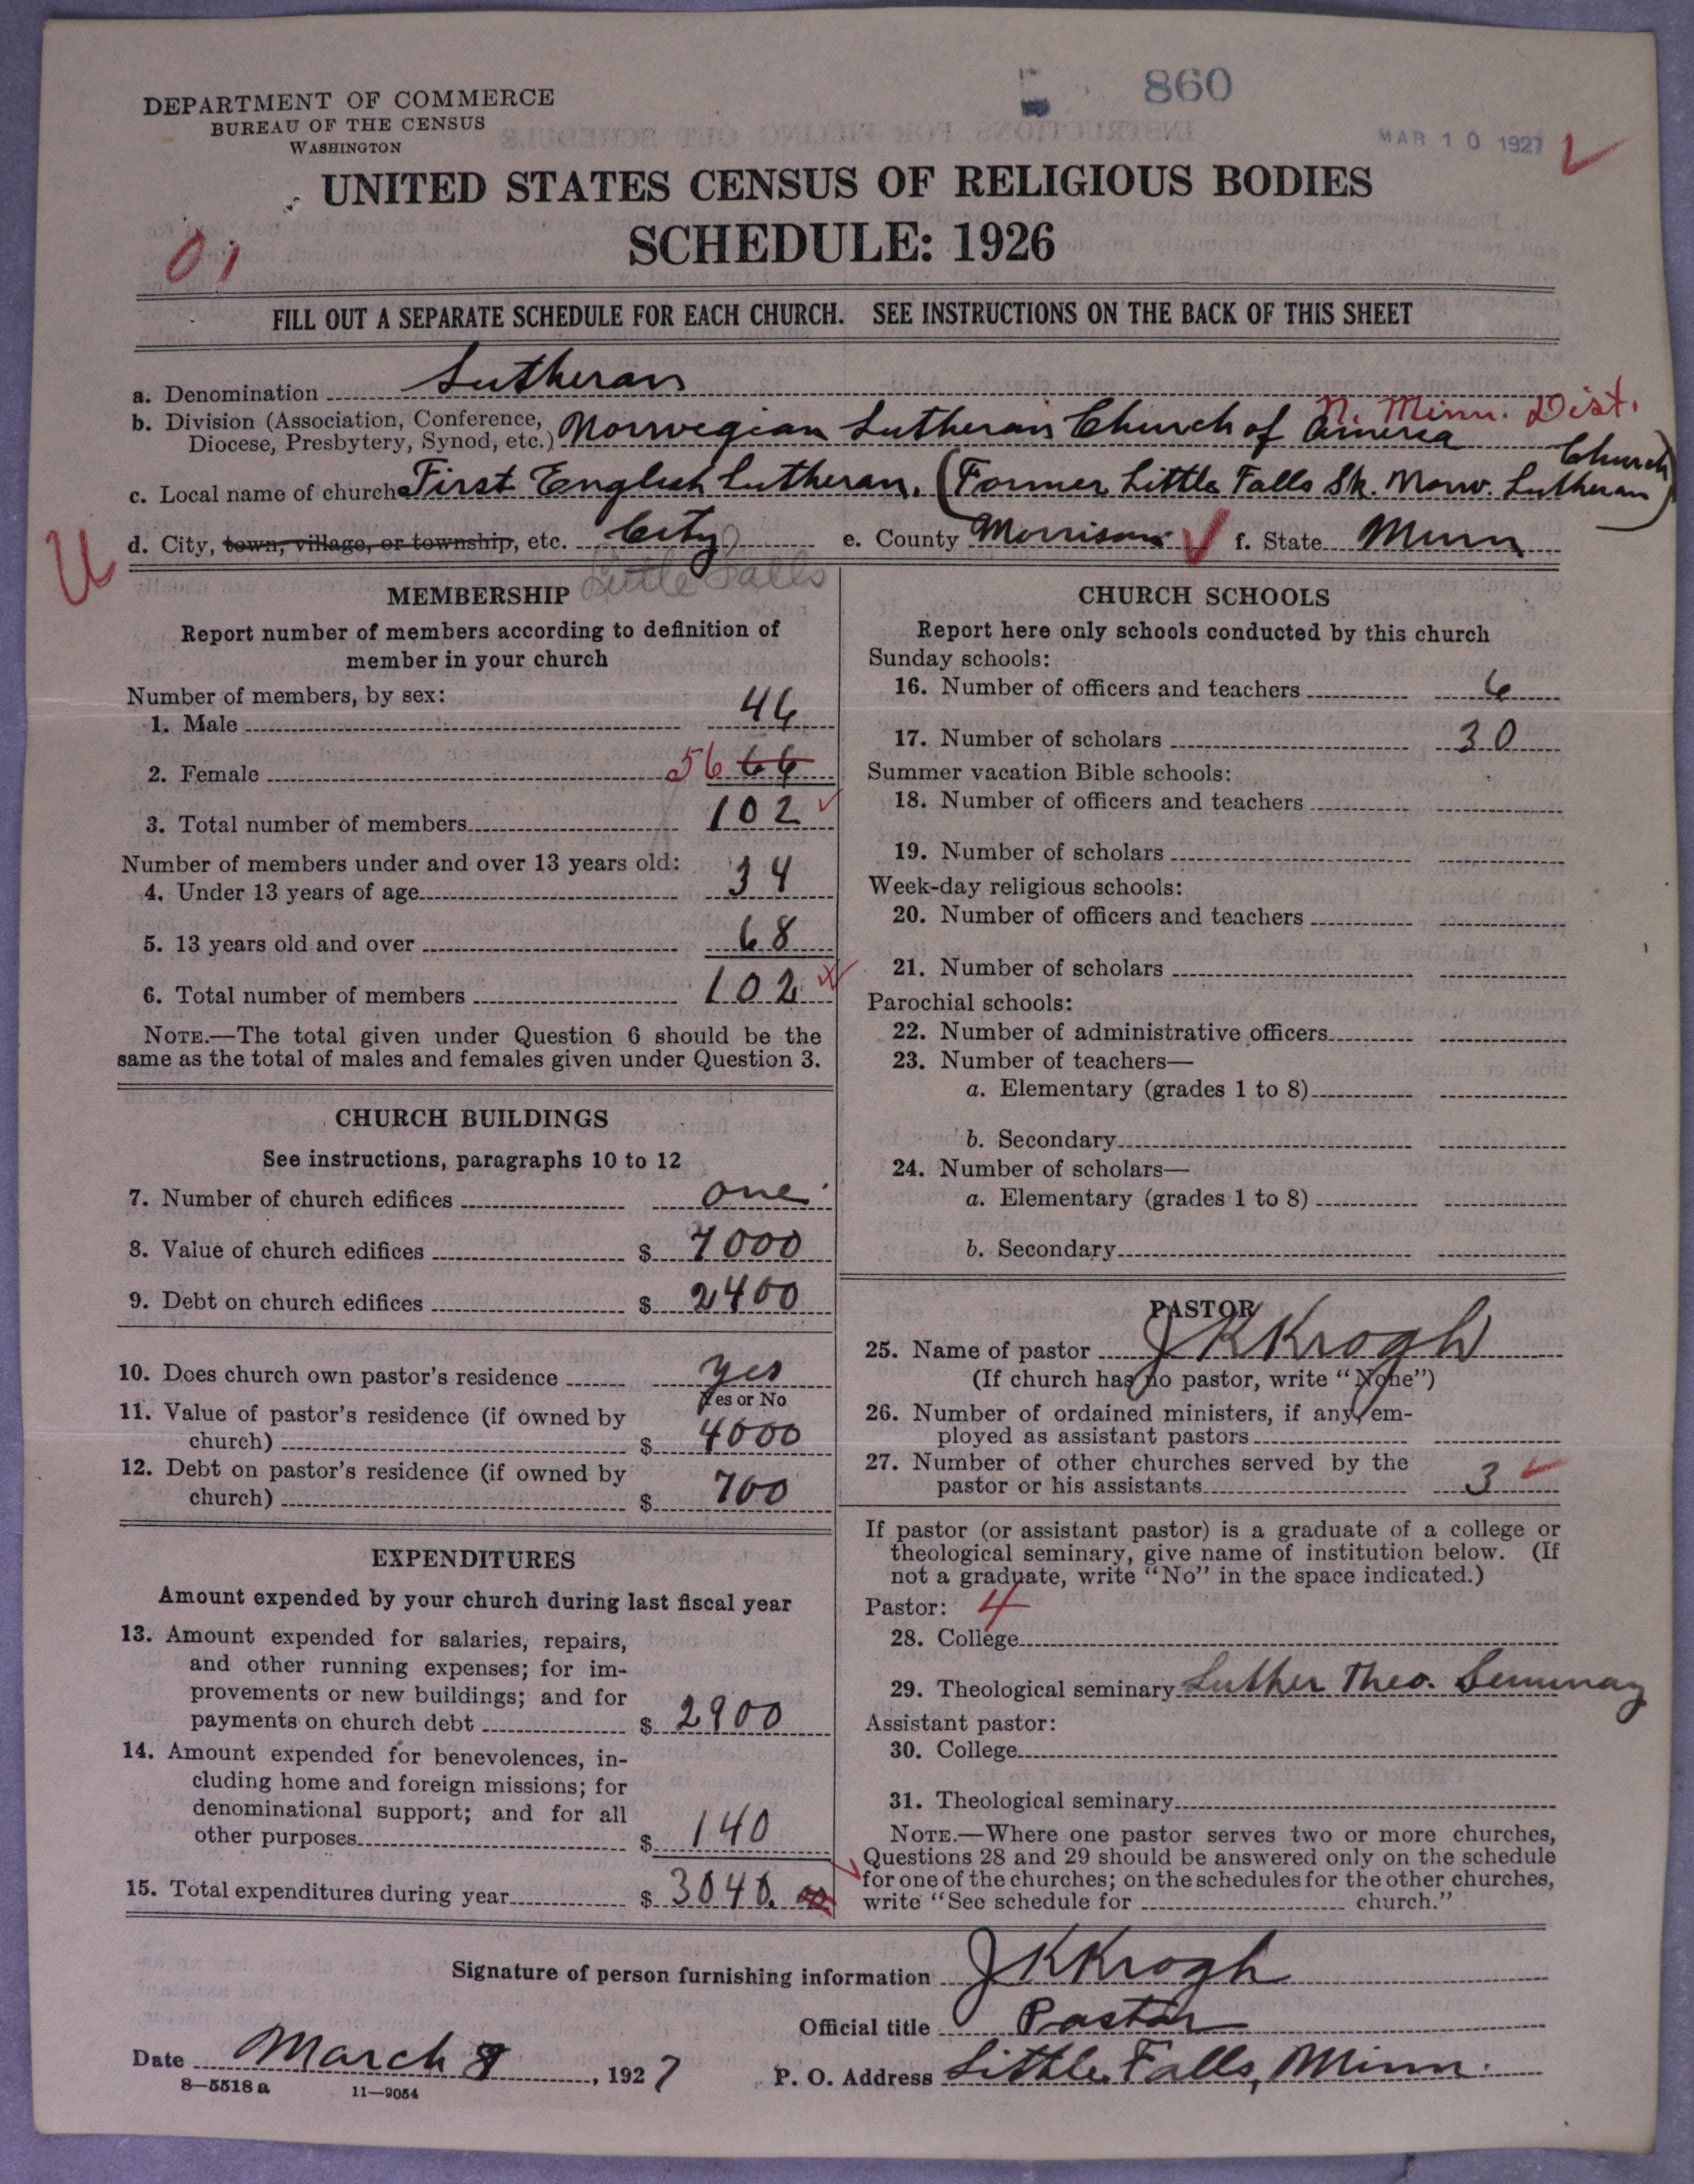 860
MAR 10 1927
DEPARTMENT OF COMMERCE
BUREAU OF THE CENSUS
WASHINGTON
UNITED STATES CENSUS OF RELIGIOUS BODIES
SCHEDULE: 1926
01
FILL OUT A SEPARATE SCHEDULE FOR EACH CHURCH. SEE INSTRUCTIONS ON THE BACK OF THIS SHEET
a. Denomination Lutheran
N. Minn. Dist.
b. Division (Association, Conference, Diocese, Presbytery, Synod, etc.) Norwegian Lutheran Church of America
c. Local name of church First English Lutheran. (Former Little Falls Sk. Norw. Lutheran Church)
U
d. City, town, village, or township, etc. City e. County Morrison f. State Minn
Little Falls
MEMBERSHIP
Report number of members according to definition of
member in your church
Number of members, by sex:
1. Male 46
2. Female 56 66
3. Total number of members 102
Number of members under and over 13 years old:
4. Under 13 years of age 34
5. 13 years old and over 68
6. Total number of members 102
NOTE.—The total given under Question 6 should be the
same as the total of males and females given under Question 3.
CHURCH BUILDINGS
See instructions, paragraphs 10 to 12
7. Number of church edifices one
8. Value of church edifices $ 7000
9. Debt on church edifices $ 2400
10. Does church own pastor's residence yes
Yes or No
11. Value of pastor's residence (if owned by
church) $ 4000
12. Debt on pastor's residence (if owned by
church) $ 700
EXPENDITURES
Amount expended by your church during last fiscal year
13. Amount expended for salaries, repairs,
and other running expenses; for im-
provements or new buildings; and for
payments on church debt $ 2900
14. Amount expended for benevolences, in-
cluding home and foreign missions; for
denominational support; and for all
other purposes $ 140
15. Total expenditures during year $ 3040.
CHURCH SCHOOLS
Report here only schools conducted by this church
Sunday schools:
16. Number of officers and teachers 6
17. Number of scholars 30
Summer vacation Bible schools:
18. Number of officers and teachers
19. Number of scholars
Week-day religious schools:
20. Number of officers and teachers
21. Number of scholars
Parochial schools:
22. Number of administrative officers
23. Number of teachers—
a. Elementary (grades 1 to 8)
b. Secondary
24. Number of scholars—
a. Elementary (grades 1 to 8)
b. Secondary
PASTOR
25. Name of pastor J K Krogh
(If church has no pastor, write "None")
26. Number of ordained ministers, if any, em-
ployed as assistant pastors
27. Number of other churches served by the
pastor or his assistants 3
If pastor (or assistant pastor) is a graduate of a college or
theological seminary, give name of institution below. (If
not a graduate, write "No" in the space indicated.)
Pastor: 4
28. College
29. Theological seminary Luther Theo. Seminary
Assistant pastor:
30. College
31. Theological seminary
NOTE.—Where one pastor serves two or more churches,
Questions 28 and 29 should be answered only on the schedule
for one of the churches; on the schedules for the other churches,
write "See schedule for church."
Signature of person furnishing information J K Krogh
Official title Pastor
Date March 8, 1927 P. O. Address Little Falls, Minn.
8—5518a 11—9054